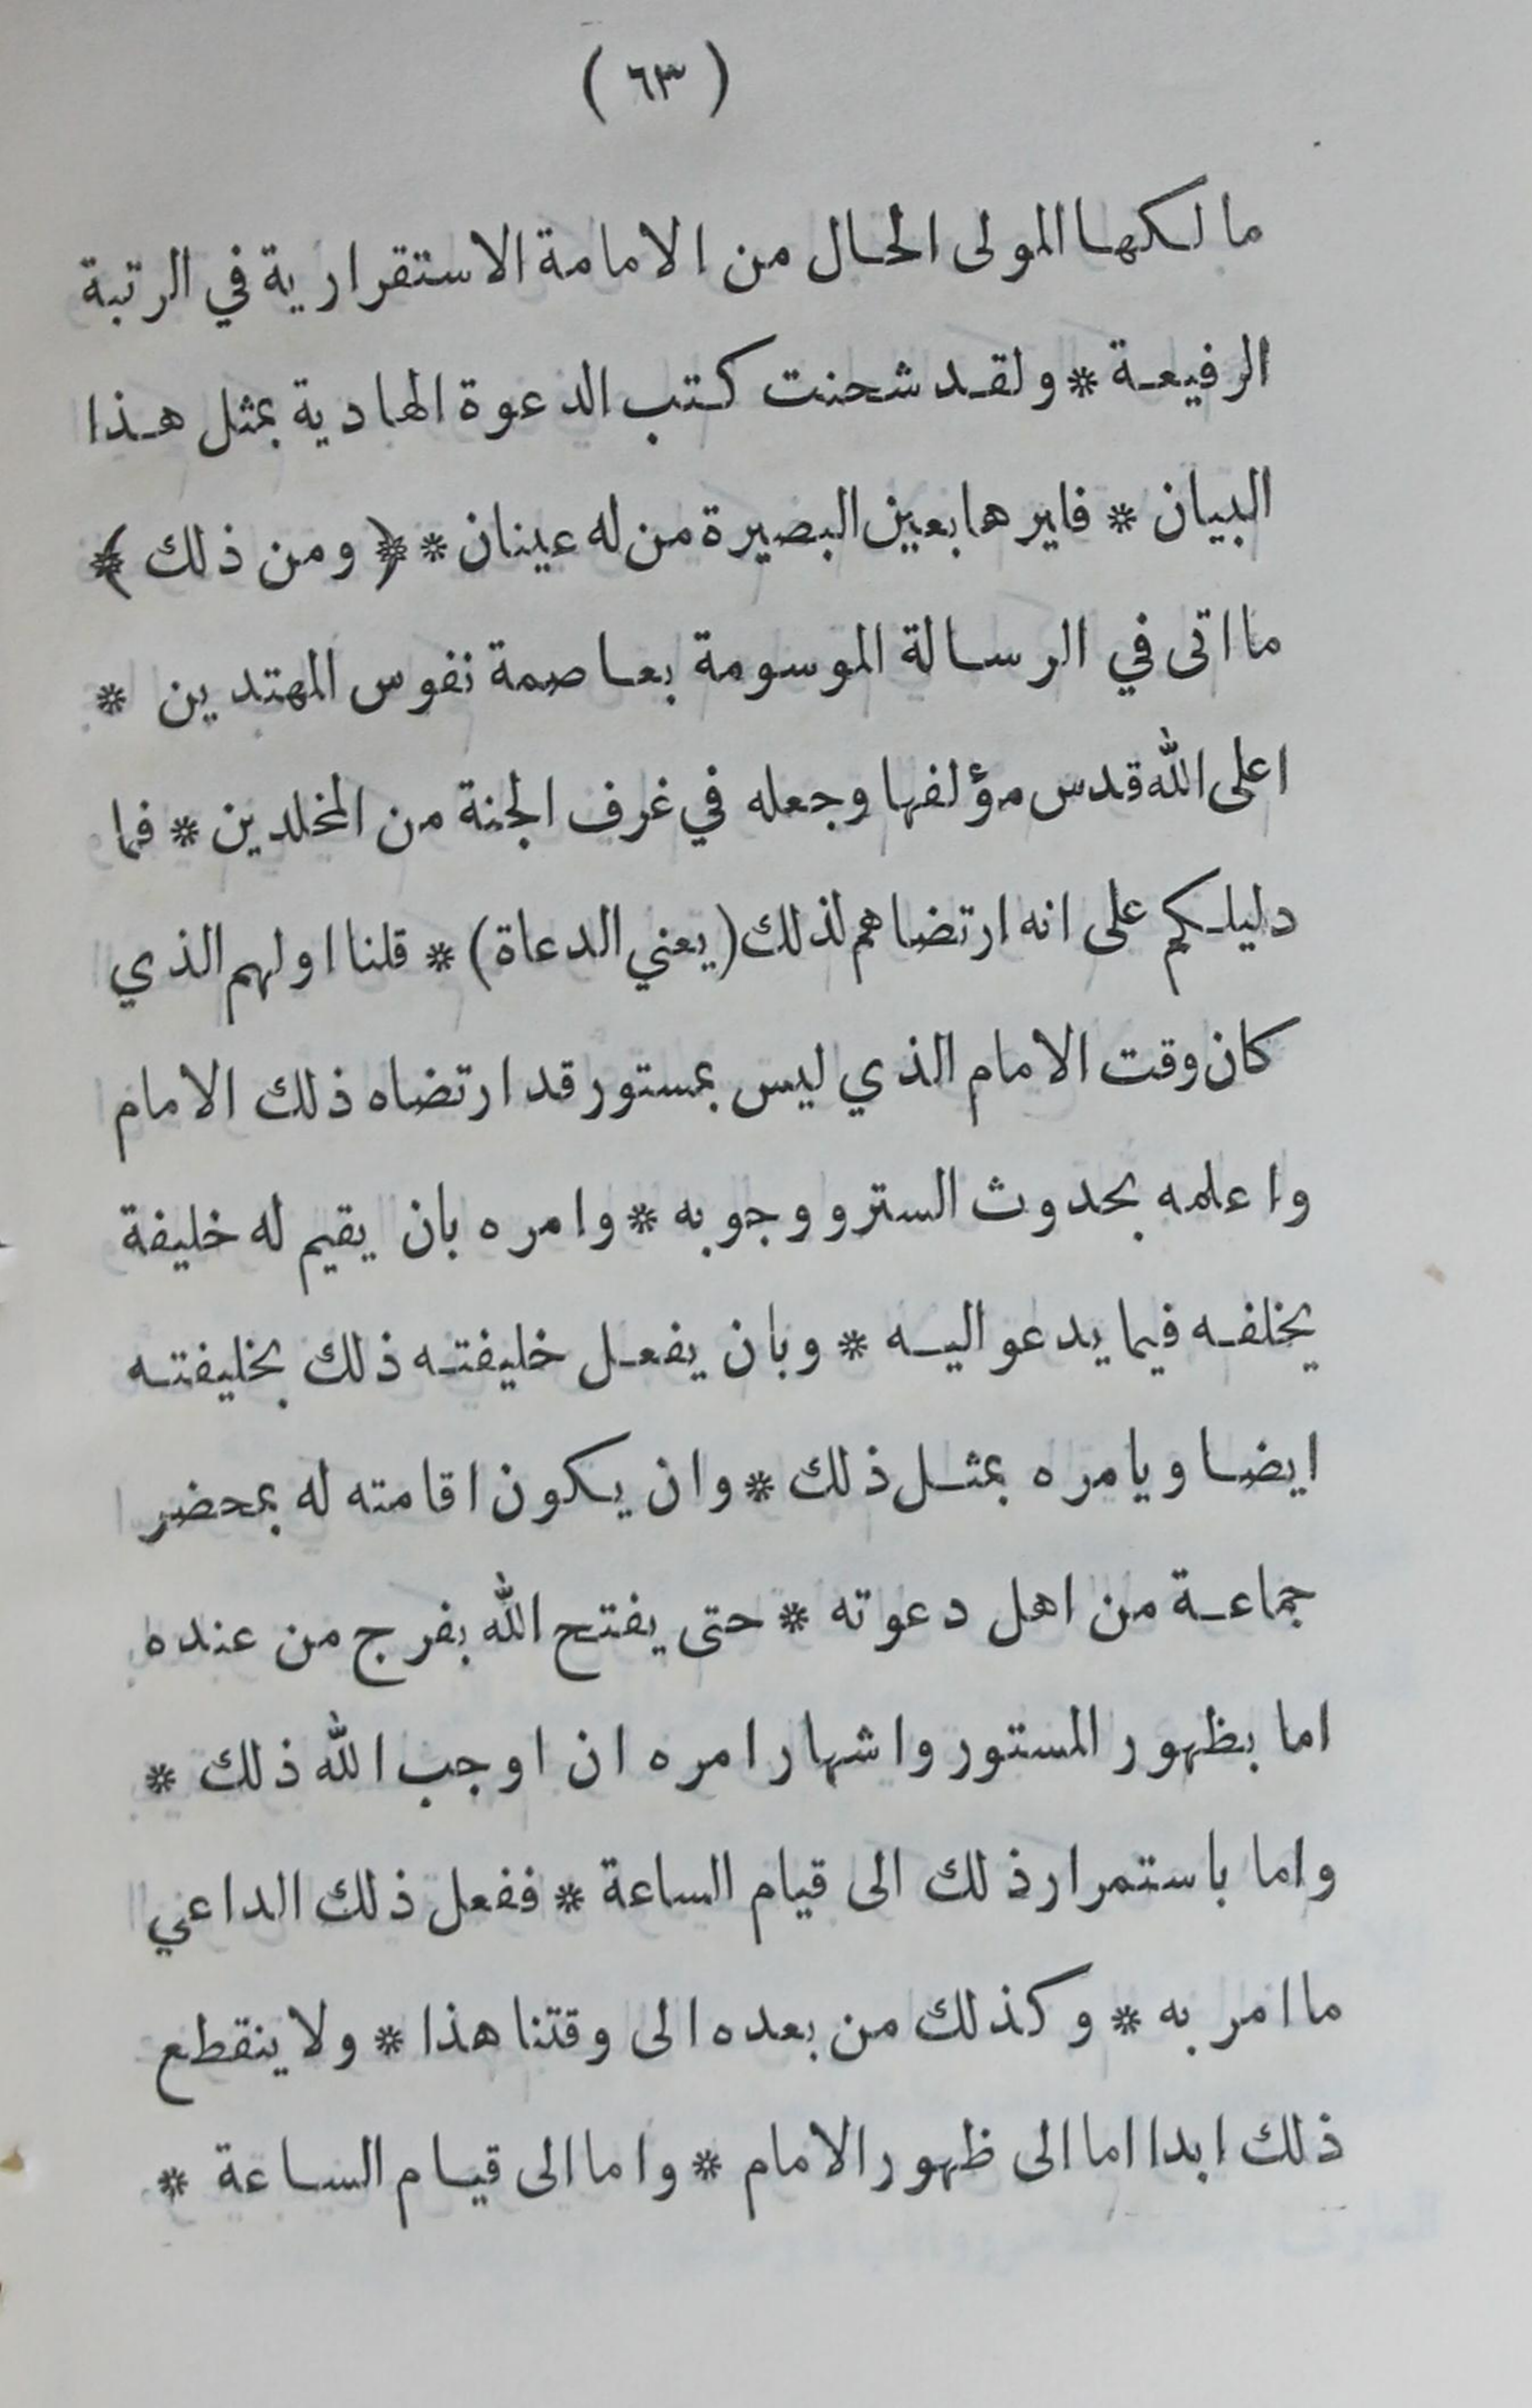 ( ٦٣ )
مالكها المولى الحال من الامامة الاستقرارية في الرتبة
الرفيعة * ولقد شحنت كتب الدعوة الهادية بمثل هذا
البيان * فايرها بعين البصيرة من له عينان * ﴿ ومن ذلك ﴾
ما اتى في الرسالة الموسومة بعاصمة نفوس المهتدين *
اعلى الله قدس مؤلفها وجعله في غرف الجنة من المخلدين * فما
دليلكم على انه ارتضاهم لذلك (يعني الدعاة) * قلنا اولهم الذي
كان وقت الامام الذي ليس بمستور قد ارتضاه ذلك الامام
واعلمه بحدوث الستر ووجوبه * وامره بان يقيم له خليفة
يخلفه فيما يدعو اليه * وبان يفعل خليفته ذلك بخليفته
ايضا ويامره بمثل ذلك * وان يكون اقامته له بمحضر
جماعة من اهل دعوته * حتى يفتح الله بفرج من عنده
اما بظهور المستور واشهار امره ان اوجب الله ذلك *
واما باستمرار ذلك الى قيام الساعة * ففعل ذلك الداعي
ما امر به * وكذلك من بعده الى وقتنا هذا * ولا ينقطع
ذلك ابدا اما الى ظهور الامام * واما الى قيام الساعة *